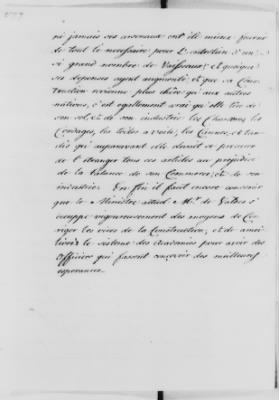 ni jamais ses arsenaux ont été mieux fournis
de tout le necessaire pour l'entretien d'un
si grand nombre de Vaisseaux; et quoique
ses depenses ayent augmenté et que sa Cons-
truction revienne plus chère qu'aux autres
nations, c'est egallement vrai qu'elle tire de
son sol et de son industrie les Chanvres, les
Cordages, les toiles a voile, les Canons, et tan-
dis qu'auparavant elle devait se procurer
de l'etranger tous ces articles au prejudice
de la Balance de son Commerce, et de son
industrie. En fin il faut encore convenir
que le Ministre actuel Mr. de Valdes s'
occuppe vigoureusement des moyens de Cor-
riger les vices de la Construction, et de amé-
liorer le sisteme des Academies pour avoir des
Officiers qui fassent concevoir des meilleures
esperances.